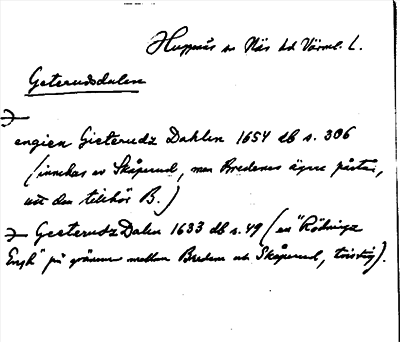 Huggnäs sn Näs hd Värml. L.
Geterudsdalen
engien Gieterudz Dahlen 1654 db s. 306
(innehas av Skåperud, men Bredenes ägare påstår,
att den tillhör B.)
Geeterudz Dalen 1633 db s. 49 (en "Rödninge
Engh" på gränsen mellan Bredene och Skåperud, tvistig).